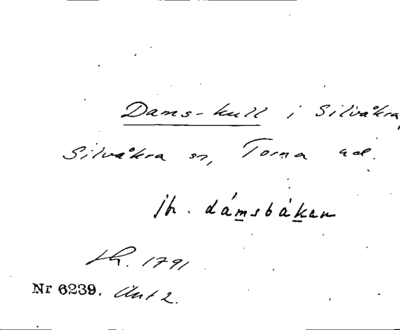 Dams-kull i Silvåkra,
Silvåkra sn, Torna hd.
jh. dámsbákan
Lh. 1791
Nr 6239. Ant 2.